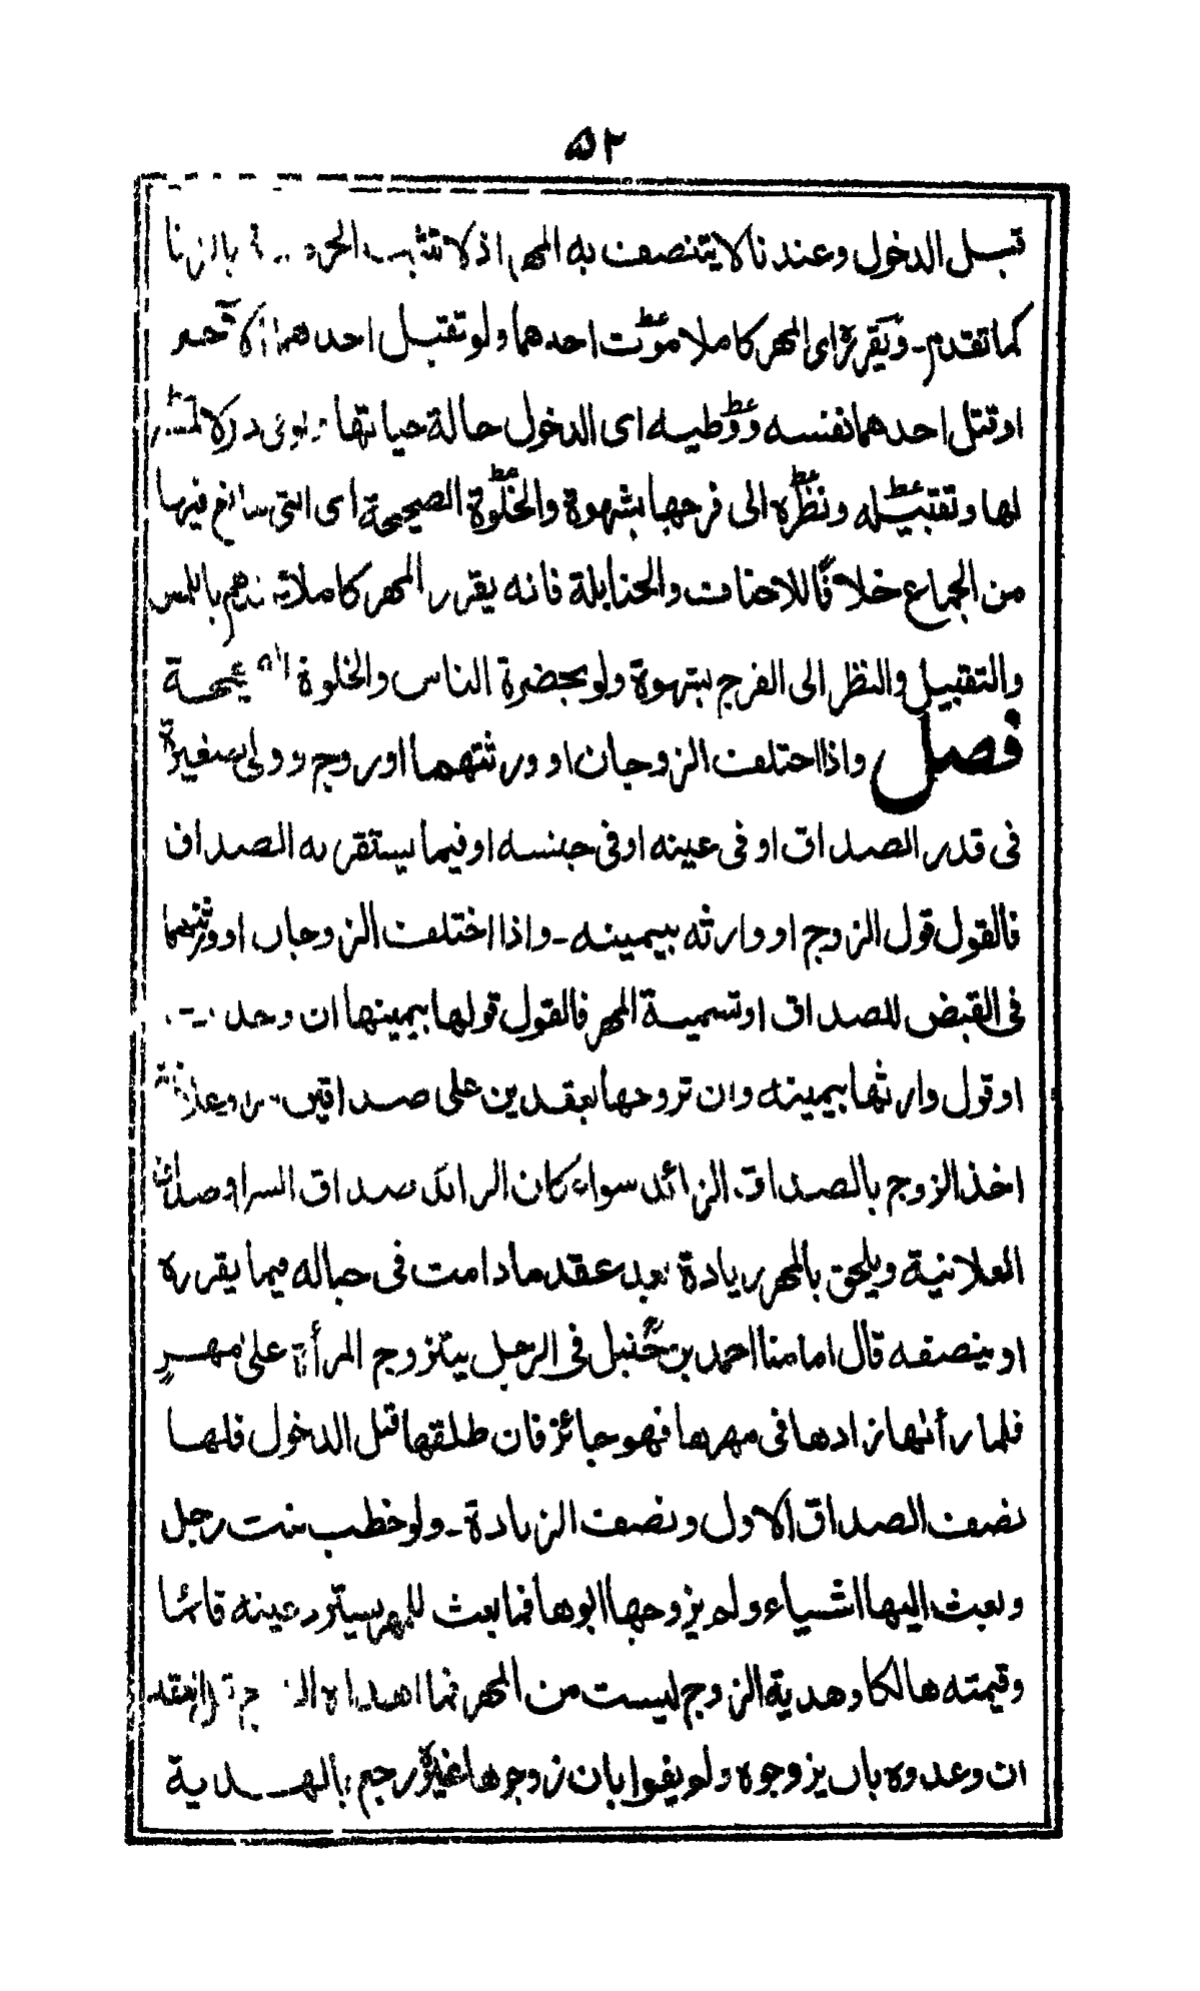 ۵۲
قبل الدخول وعندنا لا يتنصف به المهر اذ لا تثبت بالزنا
كما تقدم۔ ويقرره اى المهر كاملا موت احدهما ولو تقبل احدهما
او قتل احدهما نفسه ووطيه اى الدخول حالة حياتها
لها وتقبيله ونظره الى فرجها بشهوة والخلوة الصحيحة اى التى فيها
من الجماع خلافًا للاحناف والحنابلة فانه يقرر المهر كاملا عندهم باللمس
والتقبيل والنظر الى الفرج بشهوة ولو بحضرة الناس والخلوة الصحيحة
فصل واذا اختلف الزوجان او ورثتهما او زوج وولى صغيرة
فى قدر الصداق او فى عينه او فى جنسه او فيما يستقر به الصداق
فالقول قول الزوج او وارثه بيمينه۔ واذا اختلف الزوجان او ورثتهما
فى القبض للصداق او تسمية المهر فالقول قولها بيمينها ان وجدت
او قول وارثها بيمينه وان تزوجها بعقدين على صداقين سرا وعلانية
اخذ الزوج بالصداق الزائد سواء كان الزائد صداق السر او صداق
العلانية ويلحق بالمهر زيادة بعد عقد مادامت فى حباله فيما يقرره
او ينصفه قال امامنا احمد بن حنبل فى الرجل يتزوج المرأة على مهرٍ
فلما رأنها زادها فى مهرها فهو جائز فان طلقها قبل الدخول فلها
نصف الصداق الاول ونصف الزيادة۔ ولو خطب بنت رجل
وبعث اليها اشياء ولم يزوجها ابوها فما بعث للمهر يسترد عينه قائما
وقيمته هالكا وهدية الزوج ليست من المهر فما اهداه العقد
ان وعدوه بان يزوجوه ولم يفوا بان زوجوها غيره رجع بالهدية